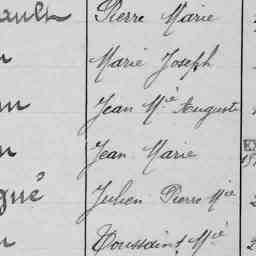 Pierre Marie
Marie Joseph
Jean Mie Auguste
Jean Marie
gué Julien Pierre Mie
Toussaint Mie